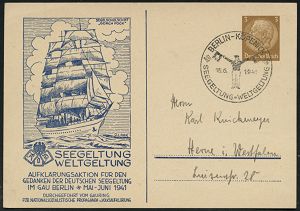 SEGELSCHULSCHIFF
"GORCH FOCK"
SEEGELTUNG
WELTGELTUNG
AUFKLÄRUNGSAKTION FÜR DEN
GEDANKEN DER DEUTSCHEN SEEGELTUNG
IM GAU BERLIN ★ MAI-JUNI 1941
DURCHGEFÜHRT VOM GAURING
FÜR NATIONALSOZIALISTISCHE PROPAGANDA u. VOLKSAUFKLÄRUNG
BERLIN-
15.6. 1941
SEEGELTUNG-WELTGELTUNG
3 3
Deutsches Reich
Herrn
Karl
Herne i. Westfalen
28